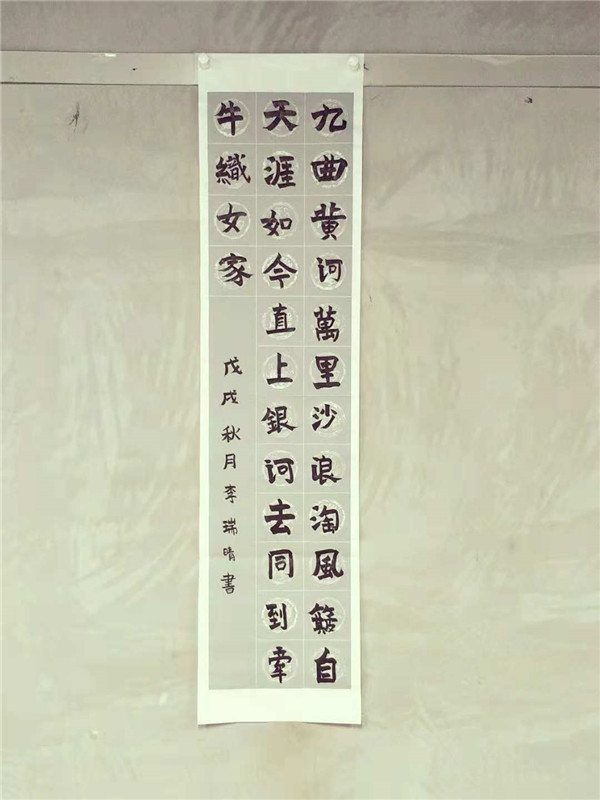 九曲黄河萬里沙浪淘風簸自
天涯如今直上銀河去同到牽
牛織女家
戊戌秋月李瑞晴書